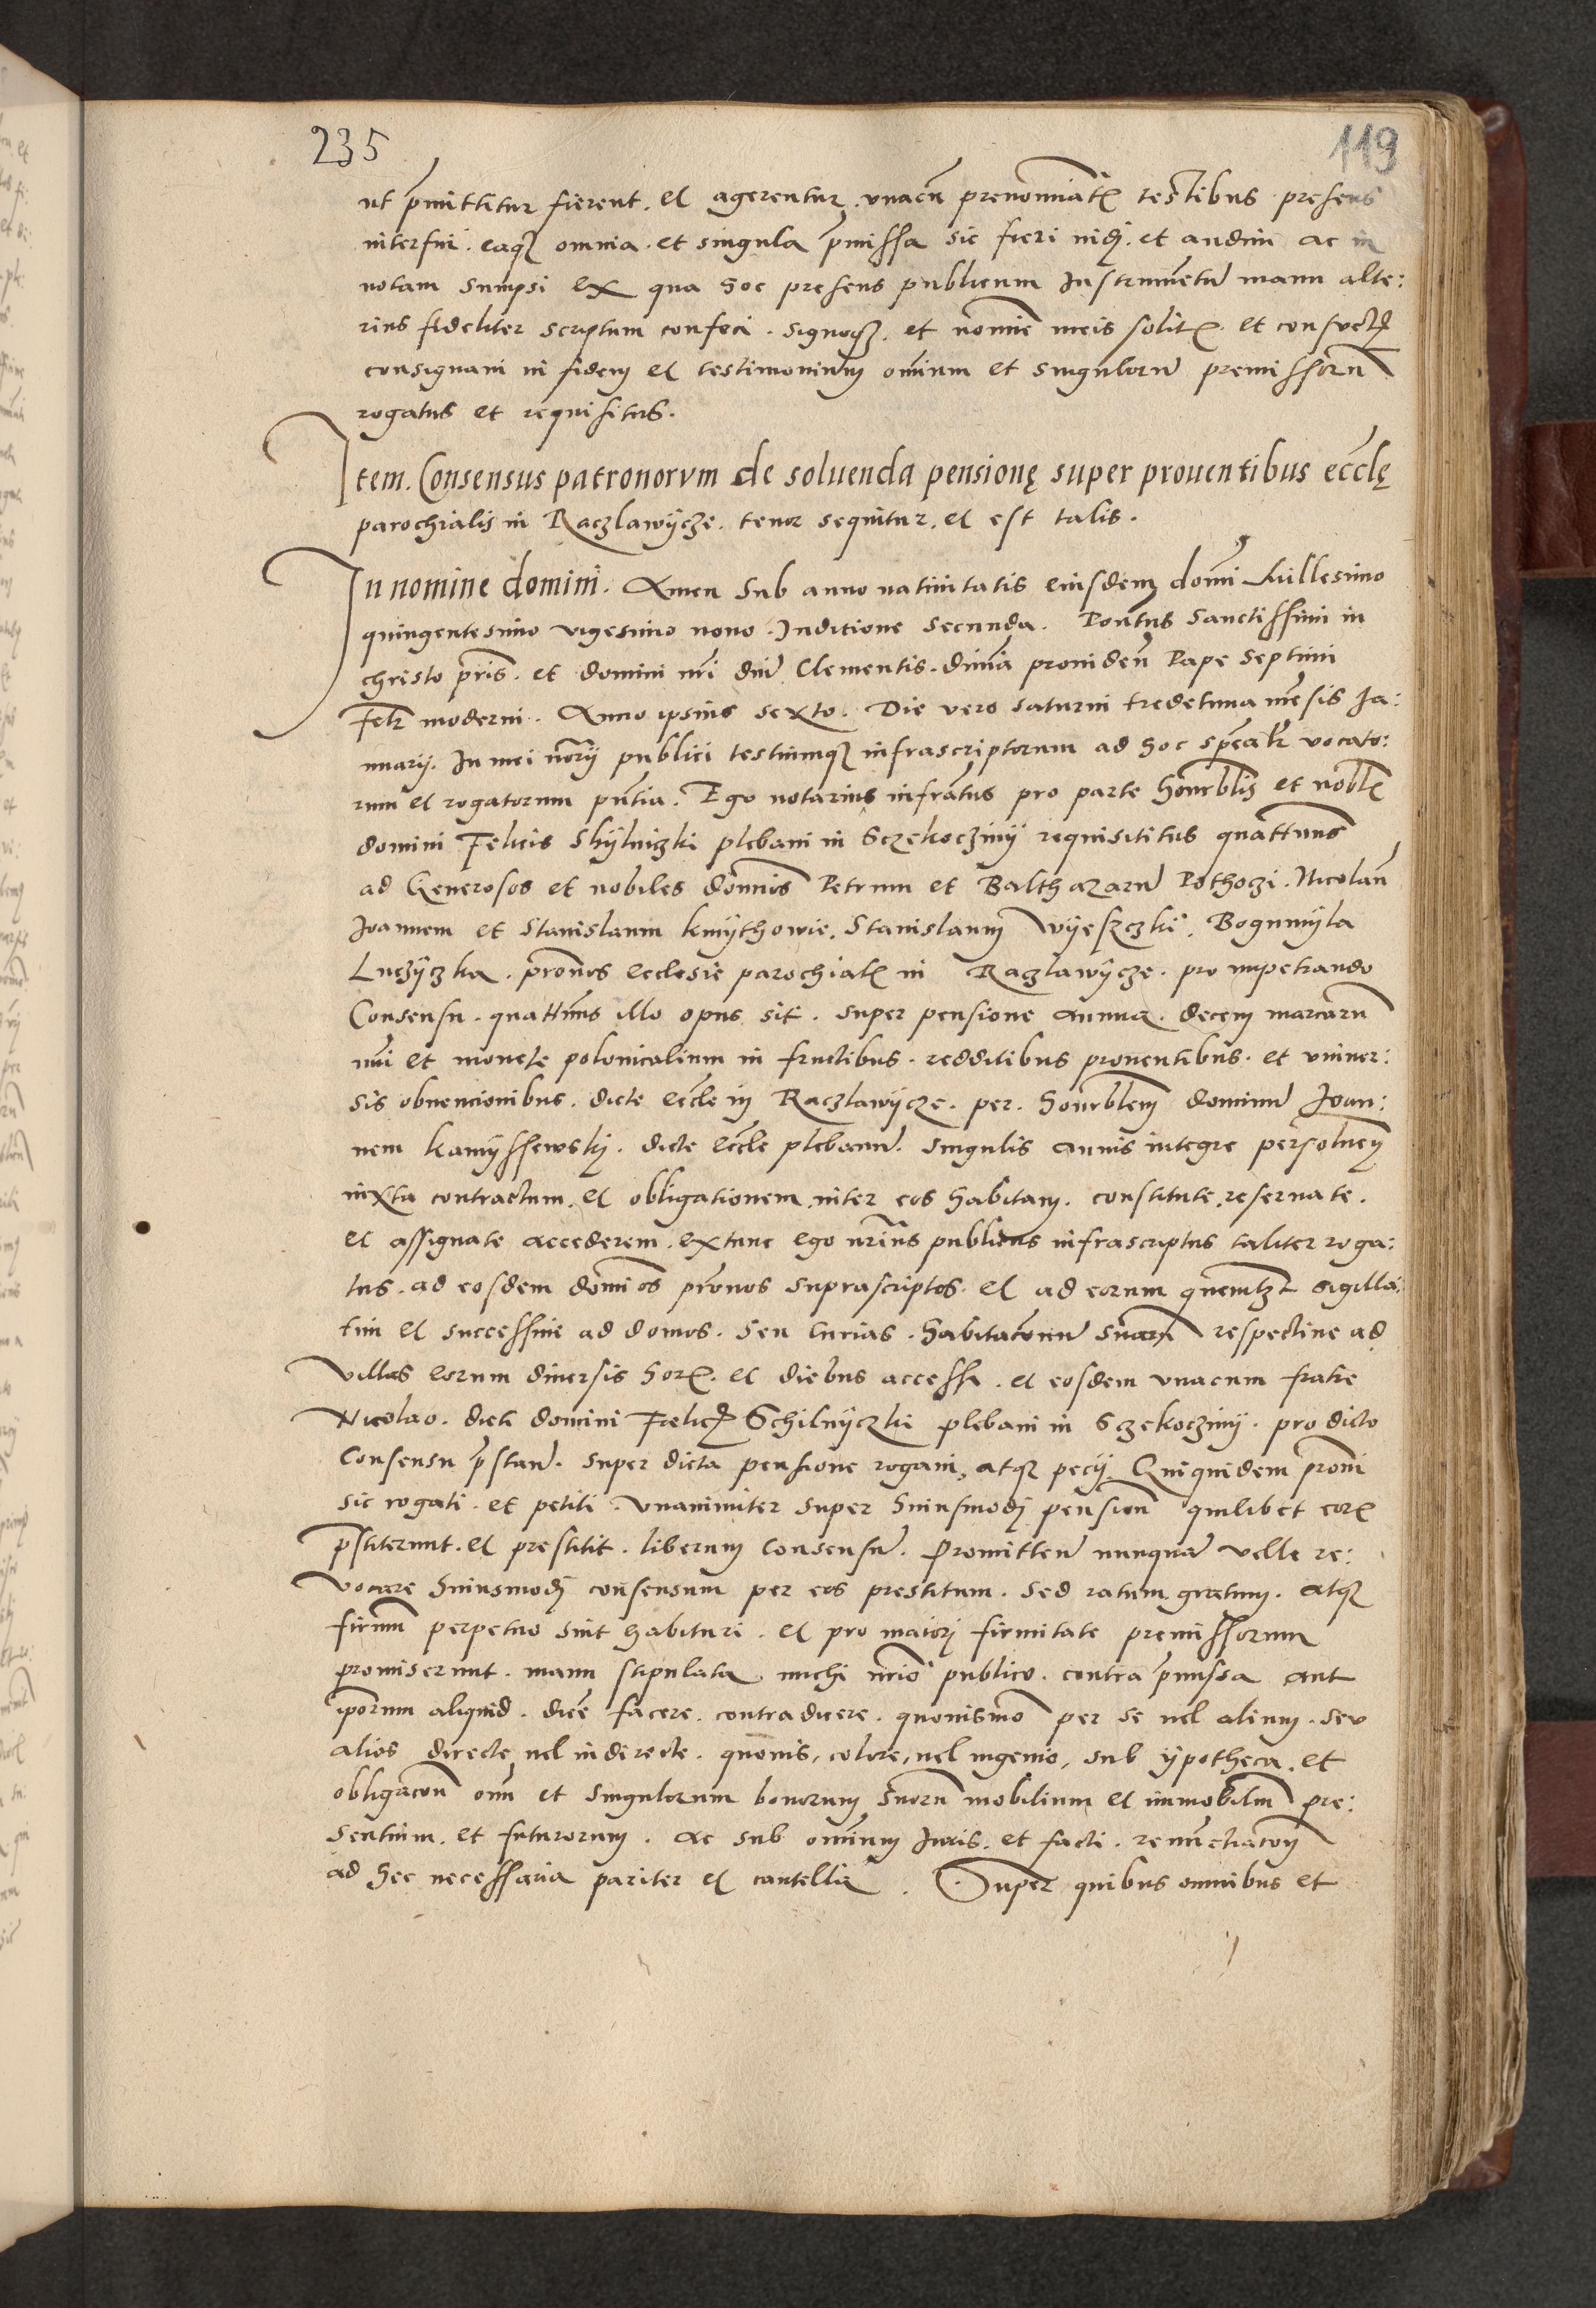 235
119
ut p̄mittitur fierent. et agerentur. vnacū prenominatꝭ testibus presens
interfui. eaqꝫ omnia. et singula p̄missa sic fieri vidj. et audivi ac in
notam sumpsi ex qua hoc presens publicum Instrumētū manu alte:
rius fideliter scriptum confeci. signoqꝫ. et nomīe meis solitꝭ. et consuetꝭ
consignavi in fidem et testimonium omīum et singulorū premissorū
rogatus et requisitus.
Item. Consensus patronorvm de soluenda pensionę super prouentibus ecclę
parochialis in Raczlawÿcze. tenor sequitur. et est talis.
In nomine domini. Amen Sub anno natiuitatis eiusdem domī Millesimo
quingentesimo vigesimo nono. Inditione secunda. Pontus Sanctissimi in
christo pris̄. et domini nrī dnī Clementis. diuīa prouidenꝭ Pape septimi
Felꝭ moderni. Anno ipsius sexto. Die vero saturni tredetima mēsis Ja:
nuarij. In mei norīj publici testiumqꝫ infrascriptorum ad hoc spēalr̄ vocato:
rum et rogatorum pn̄tia. Ego notarius infrāttus pro parte honorblis̄ et nobl̄
domini Felicis Shÿlniczki plebani in Sczekoczinÿ requisititus quattnus̄
ad Generosos et nobiles domīos Petrum et Balthazarū Pothoczi. Nicolaū
Joannem et Stanislaum kmÿthowie. Stanislaum Wÿeszczki. Bogumÿla
Luczÿczka. pronōs ecclesie parochialꝭ in Raczlawÿcze. pro impetrando
Consensu. quattnus̄ illo opus sit. super pensione annua. decem marcarū
nūi et monete polonicalium in fructibus. redditibus prouentibus. et vniuer:
sis obuencionibus. dicte eccle in Raczlawÿcze. per. honorblem̄ dominū Joan:
nem kamÿssewskj. dicte eccle plebanū. singulis annis integre persoluenꝭ
iuxta contractum. et obligationem inter eos habitam. constitute. reseruate.
et assignate accederem. extunc ego nrīus publicus infrascriptus taliter roga:
tus. ad eosdem domīos pronos suprascriptos. et ad eorum quemlꝫt sigilla:
tim et successiue ad domos. seu curias. habitacōnū suarū respectiue ad
villas eorum diuersis horꝭ. et diebus accessi. et eosdem vnacum fratre
Nicolao. dicti domini Felicꝭ Schilnÿczki plebani in Sczekoczinÿ. pro dicto
Consensu p̄standꝭ. super dicta pensione rogaui, atqꝫ pecij. Quiquidem pronī
sic rogati. et petiti. vnanimiter super huiusmodj pensionꝭ quilibet eorꝭ
p̄stiterunt. et prestitit. liberum Consensū. Promittenꝭ nunquā velle re:
vocare huiusmodj consensum per eos prestitum. sed ratum gratum. atqꝫ
firmū perpetuo sint habituri. et pro maiorj firmitate premissorum
promiserunt. manu stipulata. michi nrīo publico. contra p̄missa aut
ip̄orum aliquid. dicē facere. contradicere. quouismō per se vel alium. seu
alios directe vel inderecte. quouis, colore, vel ingenio, sub ÿpotheca. et
obligacōn om̄ et singulorum bonorum suorū mobilium et immobiliū pre:
sentium. et futurorum. ac sub omnium Juris. et facti. renunctiacōn
ad hec necessaria pariter et cautella. Super quibus omnibus et